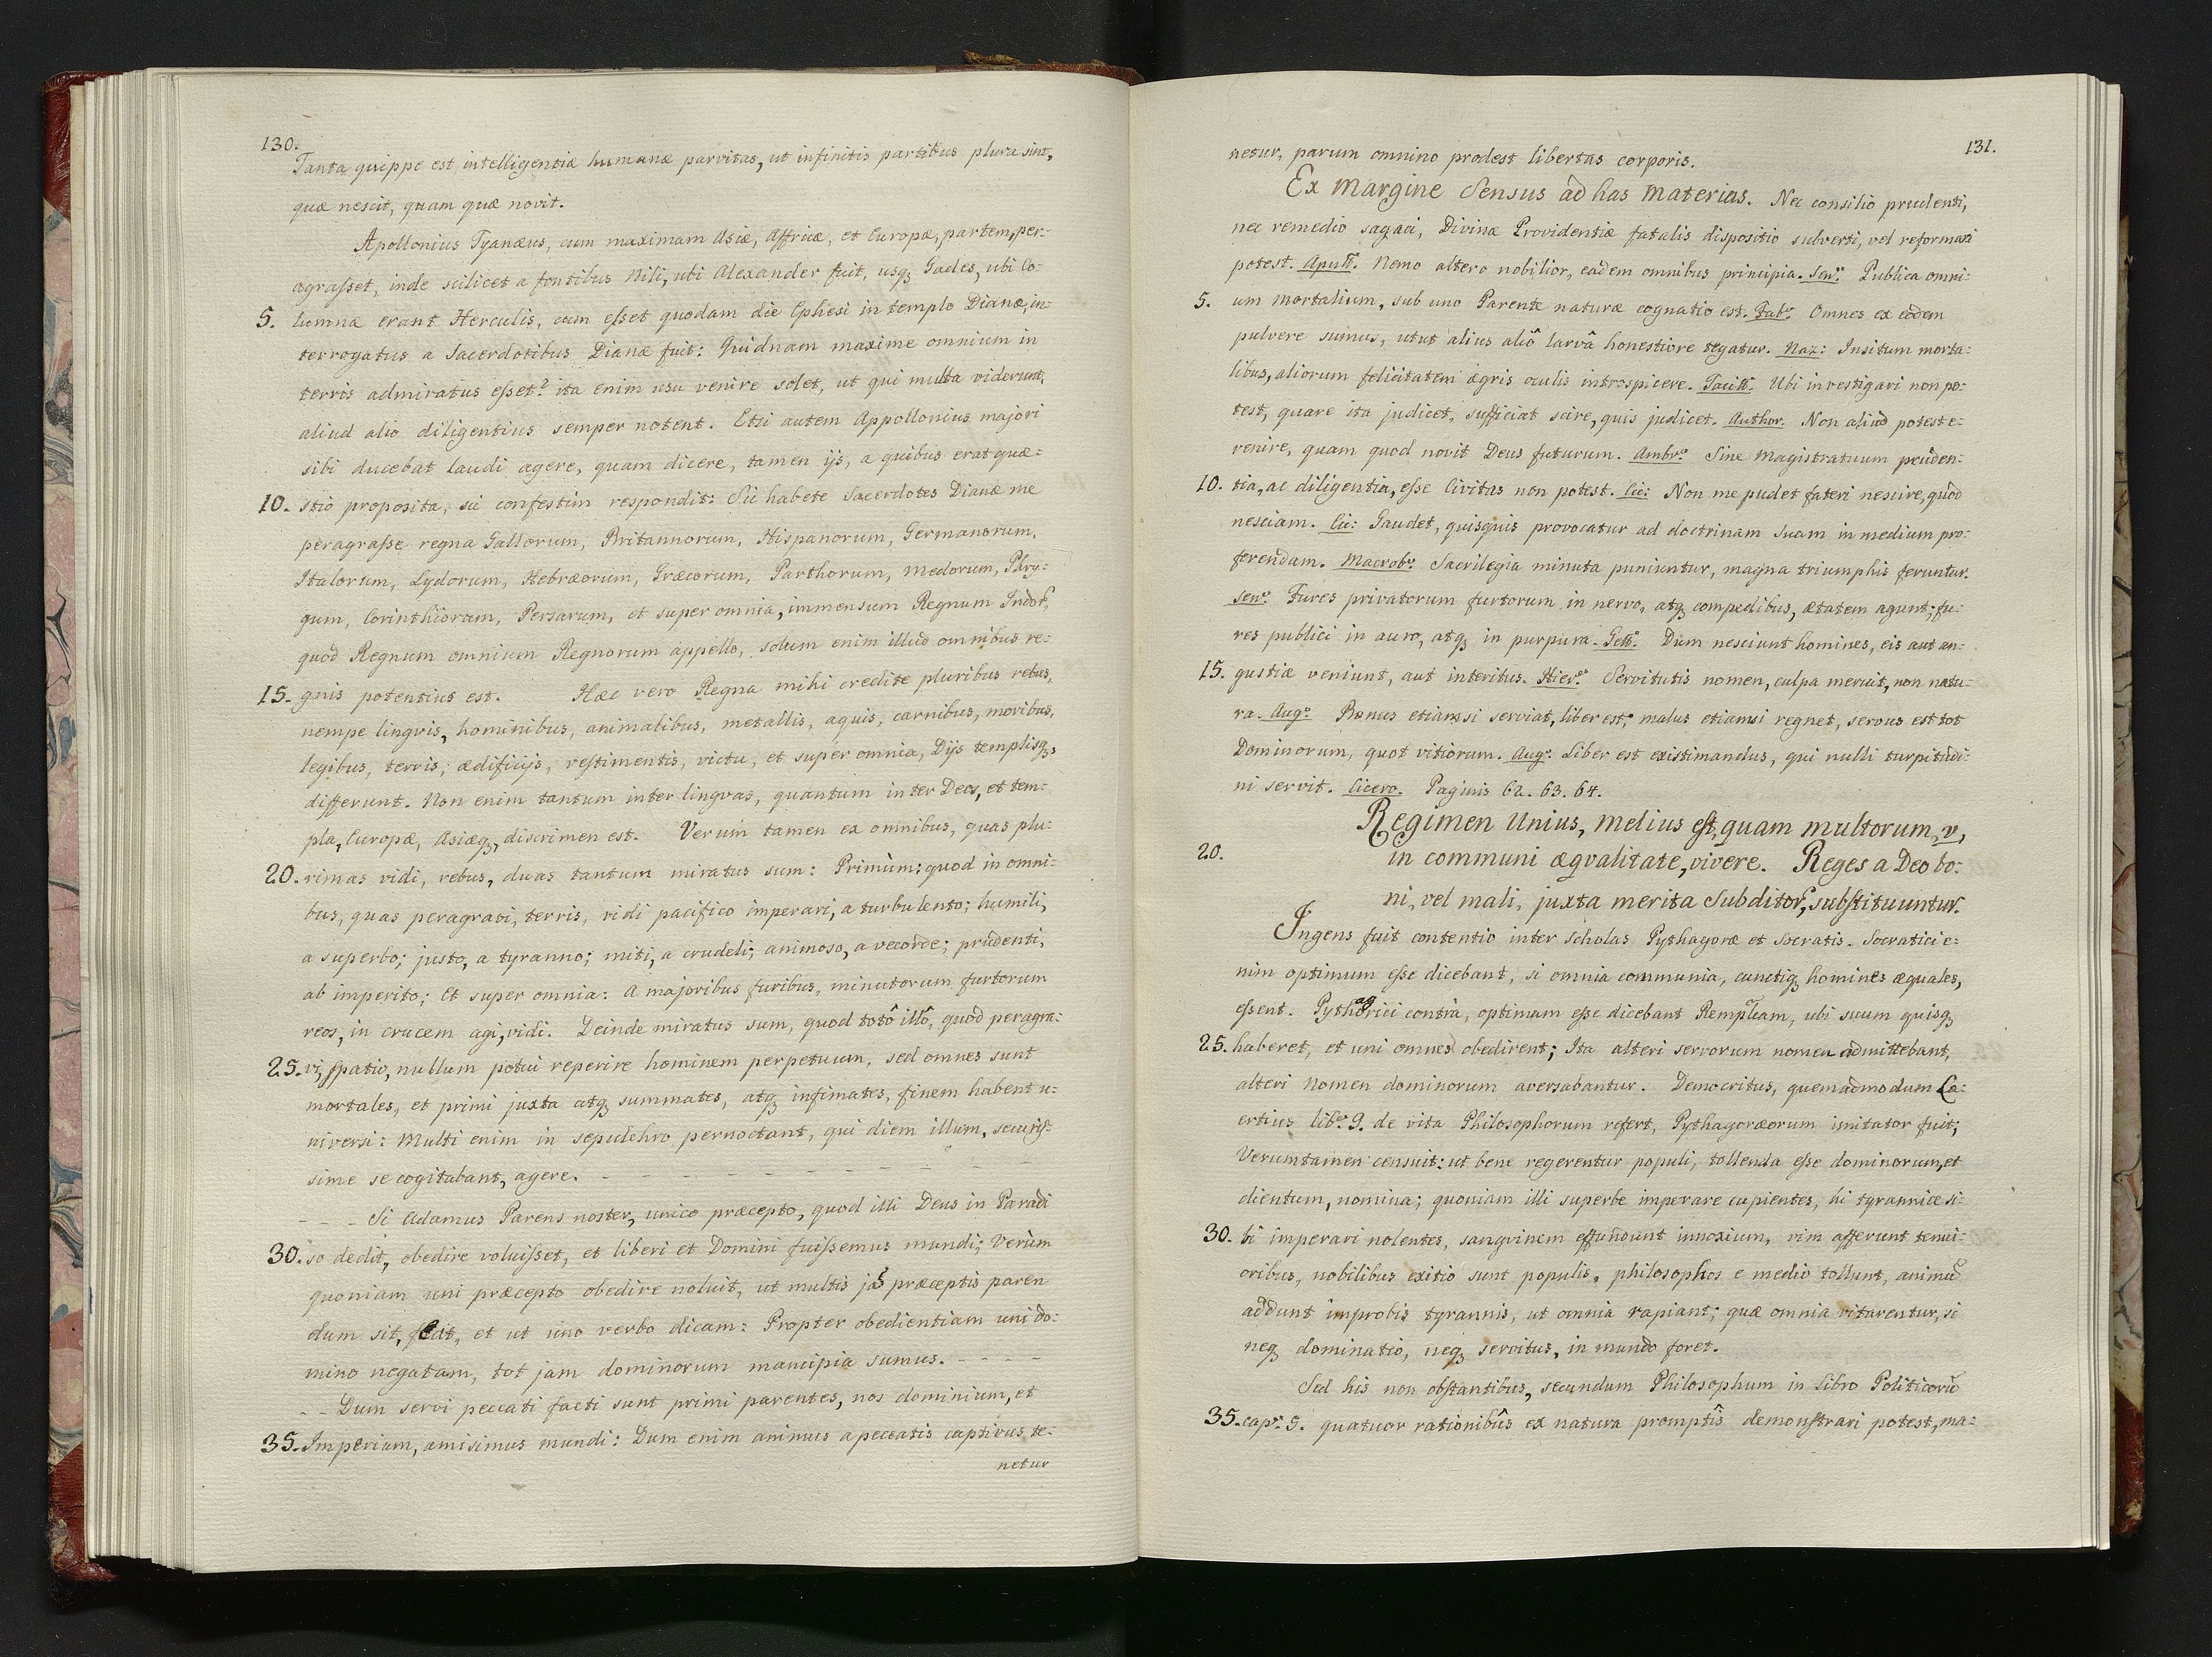 130.
Tanta quippe est intelligentiæ humanæ parvitas, ut infinitis partibus plura sint,
quæ nescit, quam quæ novit.
Apollonius Tyanæus, cum maximam Asiæ, Affricæ, et Europæ, partem, per-
agraſset, inde scilicet a fontibus Nili, ubi Alexander fuit, usqꝫ Gades, ubi Co-
5. lumnæ erant Herculis, cum eſset quodam die Ephesi in templo Dianæ, in-
terrogatus a Sacerdotibus Dianæ fuit: Quidnam maxime omnium in
terris admiratus eſset? ita enim usu venire solet, ut qui multa viderunt,
aliud alio diligentius semper notent. Etsi autem Appollonius majori
sibi ducebat laudi agere, quam dicere, tamen ijs, a quibus erat quæ-
10. stio proposita, sic confestim respondit: Sic habete Sacerdotes Dianæ me
peragraſse regna Gallorum, Britannorum, Hispanorum, Germanorum,
Italorum, Lydorum, Hebræorum, Græcorum, Parthorum, Medorum, Phry-
gum, Corinthiorum, Persarum, et super omnia, immensum Regnum Indoꝝ,
quod Regnum omnium Regnorum appello, solum enim illud omnibus re-
15. gnis potentius est. Hæc vero Regna mihi credite pluribus rebus,
nempe lingvis, hominibus, animalibus, metallis, aquis, carnibus, moribus,
legibus, terris, ædificijs, vestimentis, victu, et super omnia, Dijs templisqꝫ,
differunt. Non enim tantum inter lingvas, quantum inter Deos, et tem-
pla, Europæ, Asiæqꝫ, discrimen est. Verum tamen ex omnibus, quas plu-
20. rimas vidi, rebus, duas tantum miratus sum: Primùm: quod in omni-
bus, quas peragravi, terris, vidi pacifico imperari, a turbulento; humili,
a superbo; justo, a tyranno; miti, a crudeli; animoso, a vecorde; prudenti,
ab imperito; Et super omnia: A majoribus furibus, minutorum furtorum
reos, in crucem agi, vidi. Deinde miratus sum, quod totô illô, quod peragra-
25. vi, ſpatio, nullum potui reperire hominem perpetuum, sed omnes sunt
mortales, et primi juxta atqꝫ summates, atqꝫ infimates, finem habent u-
niversi: Multi enim in sepulchro pernoctant, qui diem illum, securiſ-
sime se cogitabant, agere. - - - - - - - - -
- - - Si Adamus Parens noster, unico præcepto, quod illi Deus in Paradi
30. so dedit, obedire voluiſset, et liberi et Domini fuiſsemus mundi; Verùm
quoniam uni præcepto obedire noluit, ut multis præceptis paren
dum sit, et ut uno verbo dicam: Propter obedientiam uni do-
mino negatam, tot jam dominorum mancipia sumus. - - - -
- - Dum servi peccati facti sunt primi parentes, nos dominium, et
35. Imperium, amisimus mundi: Dum enim animus a peccatis captivus te-
netur
131.
netur, parum omnino prodest libertas corporis.
Ex Margine Sensus ad has Materias. Nec consilio prudenti,
nec remedio sagaci, Divinæ Providentiæ fatalis dispositio subverti, vel reformari
potest. Apull: Nemo altero nobilior, eadem omnibus principia. Sen: Publica omni-
5. um mortalium, sub uno Parente naturæ cognatio est. Fab: Omnes ex eodem
pulvere sumus, utut alius aliô larvâ honestiore tegatur. Naz: Insitum morta-
libus, aliorum felicitatem ægris oculis introspicere. Tacitt: Ubi investigari non po-
test, quare ita judicet, sufficiat scire, quis judicet. Author. Non aliud potest e-
venire, quam quod novit Deus futurum. Ambr: Sine Magistratuum pruden-
10. tia, ac diligentia, eſse Civitas non potest. Cic: Non me pudet fateri nescire, quod
nesciam. Cic: Gaudet, quisquis provocatur ad doctrinam suam in medium pro-
ferendam. Macrob: Sacrilegia minuta puniuntur, magna triumphis feruntur.
Sen: Fures privatorum furtorum in nervo, atqꝫ compedibus, ætatem agunt, fu-
res publici in auro, atqꝫ in purpura. Gell: Dum nesciunt homines, eis aut an-
15. gustiæ veniunt, aut interitus. Hier: Servitutis nomen, culpa meruit, non natu-
ra. Aug: Bonus etiamsi serviat, liber est; malus etiamsi regnet, servus est tot
Dominorum, quot vitiorum. Aug: Liber est existimandus, qui nulli turpitudi-
ni servit. Cicero. Paginis 62. 63. 64.
Regimen Unius, melius eſt, quam multorum, v,
20. in communi æqvalitate, vivere. Reges a Deo bo-
ni, vel mali, juxta merita Subditoꝝ, subſtituuntur.
Ingens fuit contentio inter Scholas Pythagoræ et Socratis. Socratici e-
nim optimum eſse dicebant, si omnia communia, cunctiqꝫ homines æquales,
eſsent. Pythagorici contrà, optimam eſse dicebant Rempcam, ubi suum quisqꝫ
25. haberet, et uni omnes obedirent; Ita alteri servorum nomen admittebant,
alteri nomen dominorum aversabantur. Democritus, quemadmodum La-
ertius lib: 9. de vita Philosophorum refert, Pythagoræorum imitator fuit;
Verumtamen censuit: ut bene regerentur populi, tollenda eſse dominorum, et
dientum, nomina; quoniam illi superbe imperare cupientes, hi tyrannice si-
30. bi imperari nolentes, sangvinem effundunt innoxium, vim afferunt tenui-
oribus, nobilibus exitio sunt populis, philosophos e medio tollunt, animũ
addunt improbis tyrannis, ut omnia rapiant; quæ omnia vitarentur, si
neqꝫ dominatio, neqꝫ servitus, in mundo foret.
Sed his non obſtantibus, secundum Philosophum in Libro Politicorũ
35. cap: 5. quatuor rationibûs ex natura promptîs demonſtrari potest, ma-